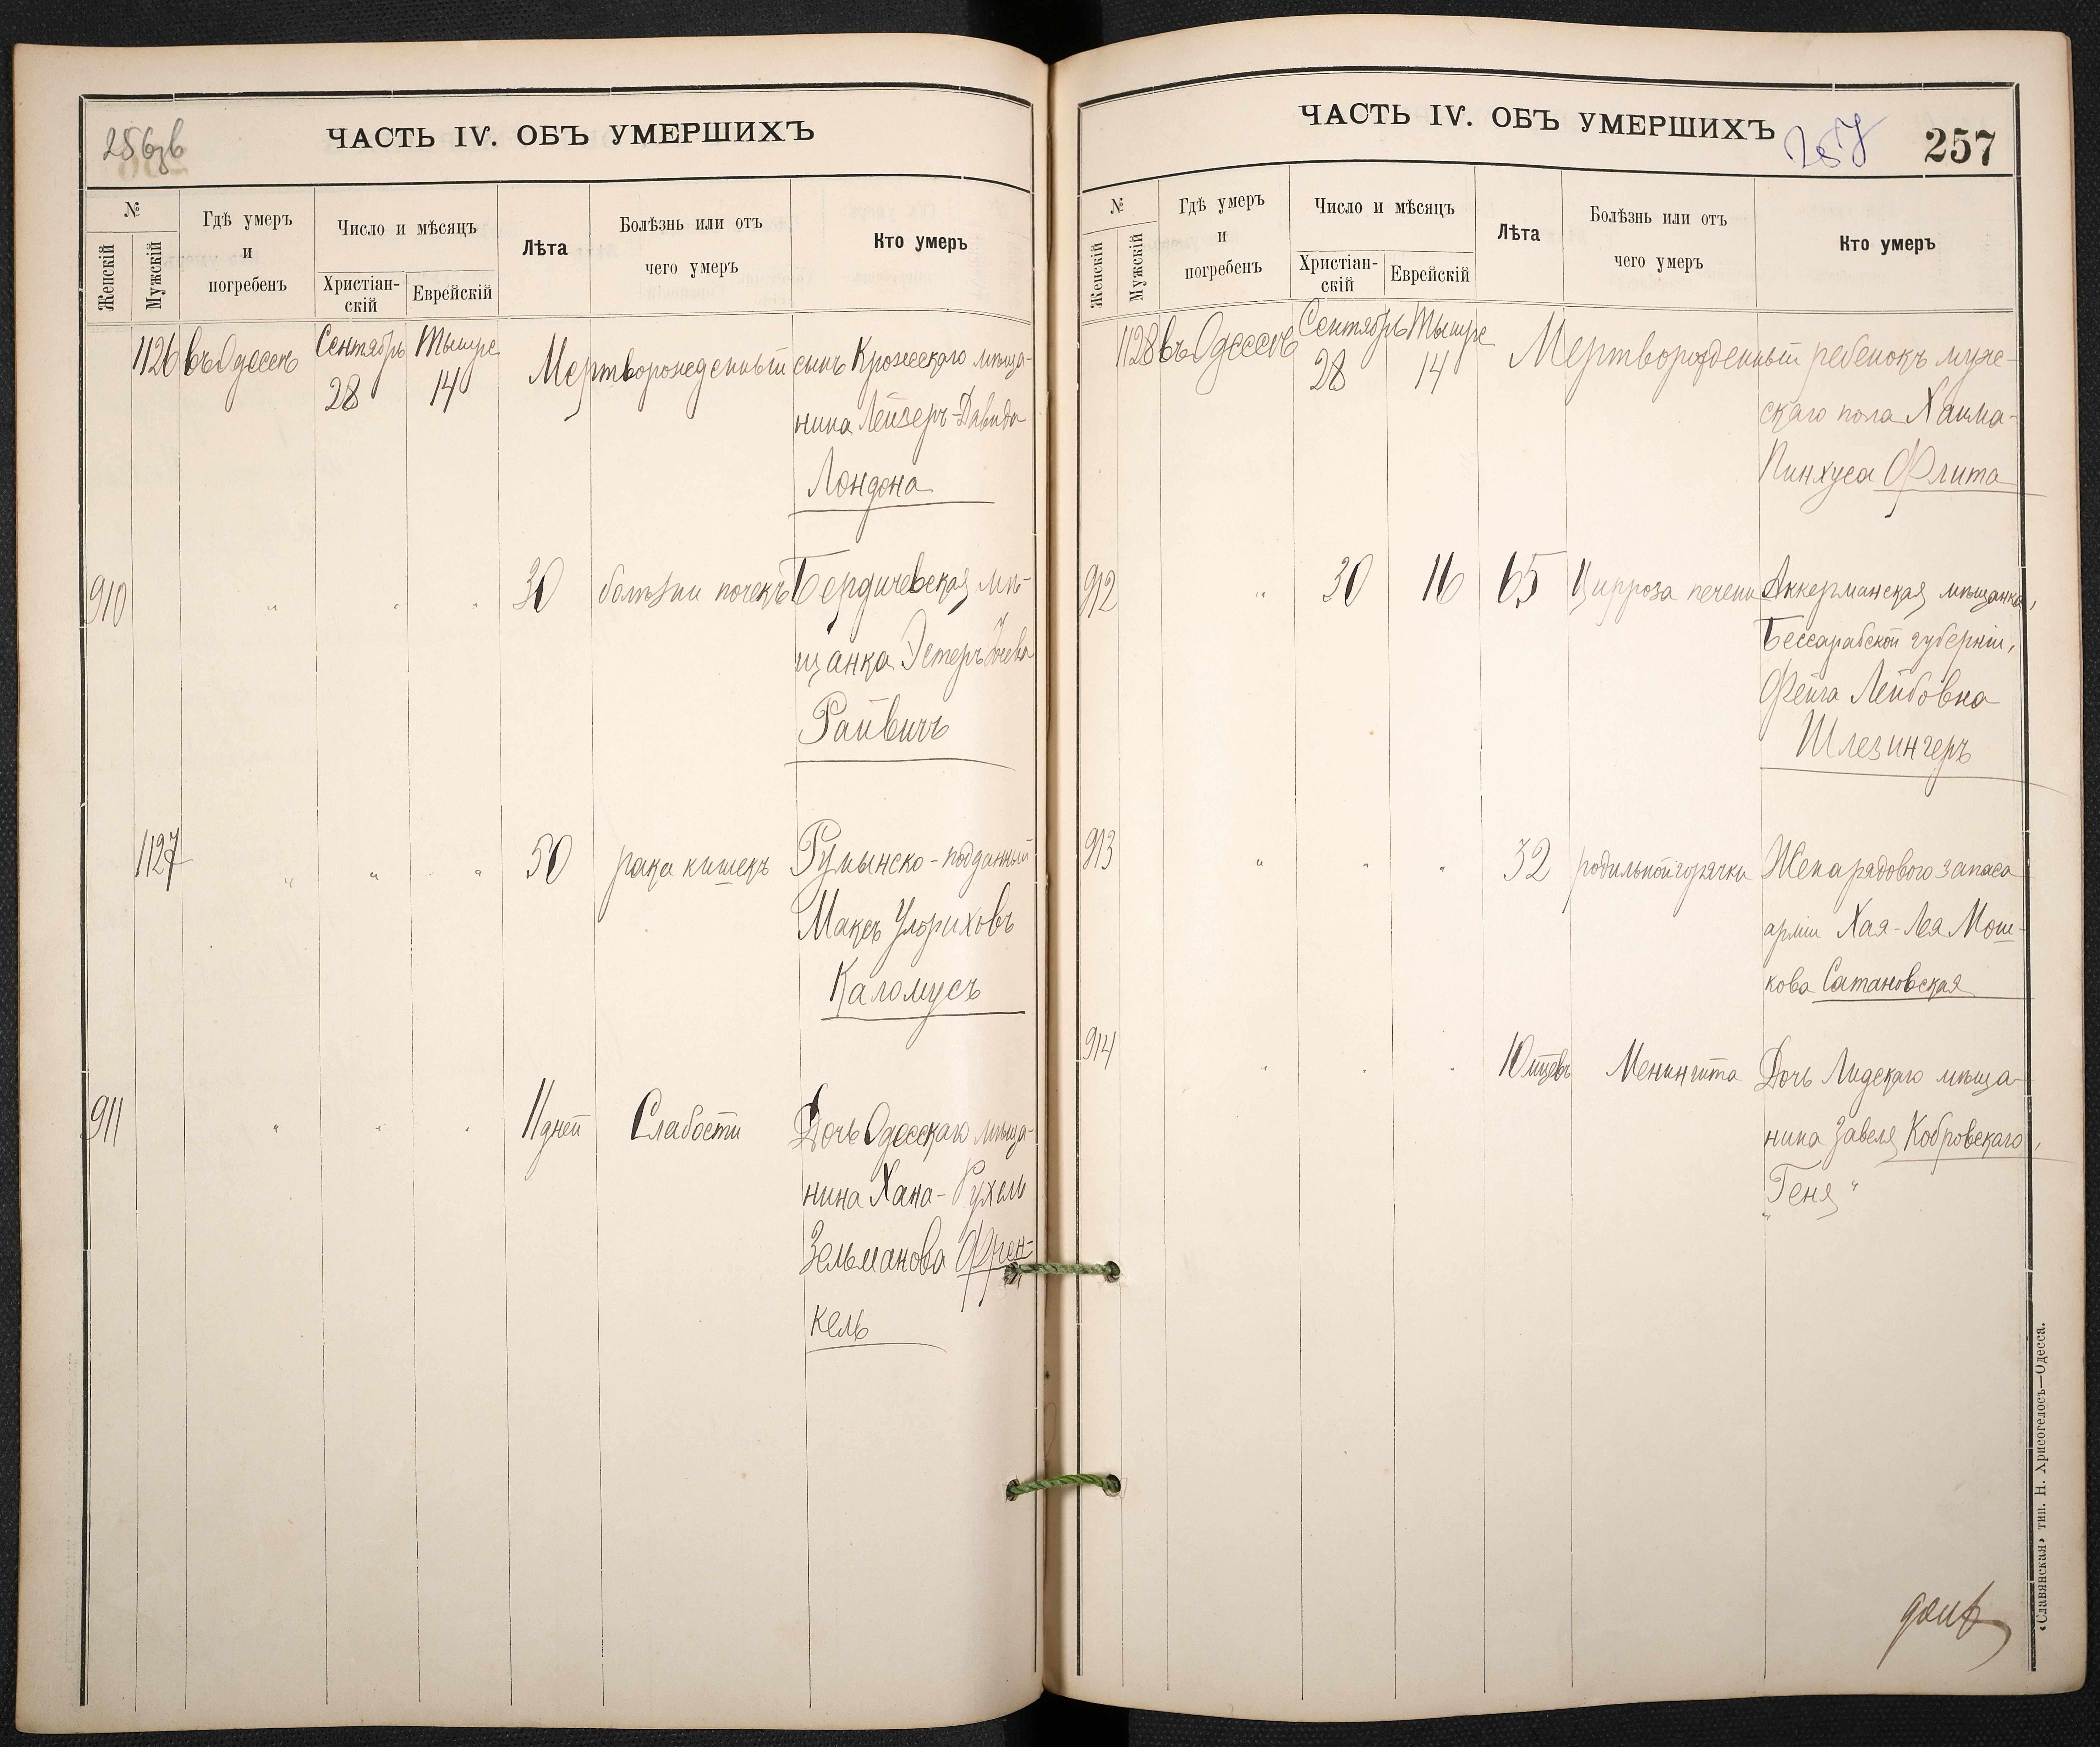 256зв
ЧАСТЬ IV. ОБЪ УМЕРШИХЪ
№
Женскій
Мужскій
Гдѣ умеръ
и
погребенъ
Число и мѣсяцъ
Христіан-
скій
Еврейскій
Лѣта
Болѣзнь или отъ
чего умеръ
Кто умеръ
1126 въ Одессѣ Сентябрь 28 Тышре 14 Мертворожденный сынъ Крожескаго мѣща-
нина Лейзеръ-Давида
Лондона
910 " " " 30 болѣзни почекъ Бердичевская мѣ-
щанка Эстеръ
Райвичъ
1127 " " " 50 рака кишекъ Румынско-подданный
Максъ
Каломусъ
911 " " " 11 дней Слабости Дочь Одесскаго мѣща-
нина Хана-Рухель
Зельманова Френ-
кель
ЧАСТЬ IV. ОБЪ УМЕРШИХЪ
257
257
№
Женскій
Мужскій
Гдѣ умеръ
и
погребенъ
Число и мѣсяцъ
Христіан-
скій
Еврейскій
Лѣта
Болѣзнь или отъ
чего умеръ
Кто умеръ
1128 въ Одессѣ Сентябрь 28 Тышре 14 Мертворожденный ребенокъ муже-
скаго пола Хаима-
Пинхуса Флита
912 " 30 16 65 Цирроза печени Аккерманская мѣщанка,
Бессарабской губерніи,
Фейга Лейбовна
Шлезингеръ
913 " " " 32 родильной горячки Жена рядового запаса
арміи Хая-Лея Мош-
кова Сатановская
914 " " " 10 мцевъ Менингита Дочь Лидскаго мѣща-
нина Завеля Кобровскаго,
"Геня"
«Славянская» тип. Н. Хрисогелосъ—Одесса.